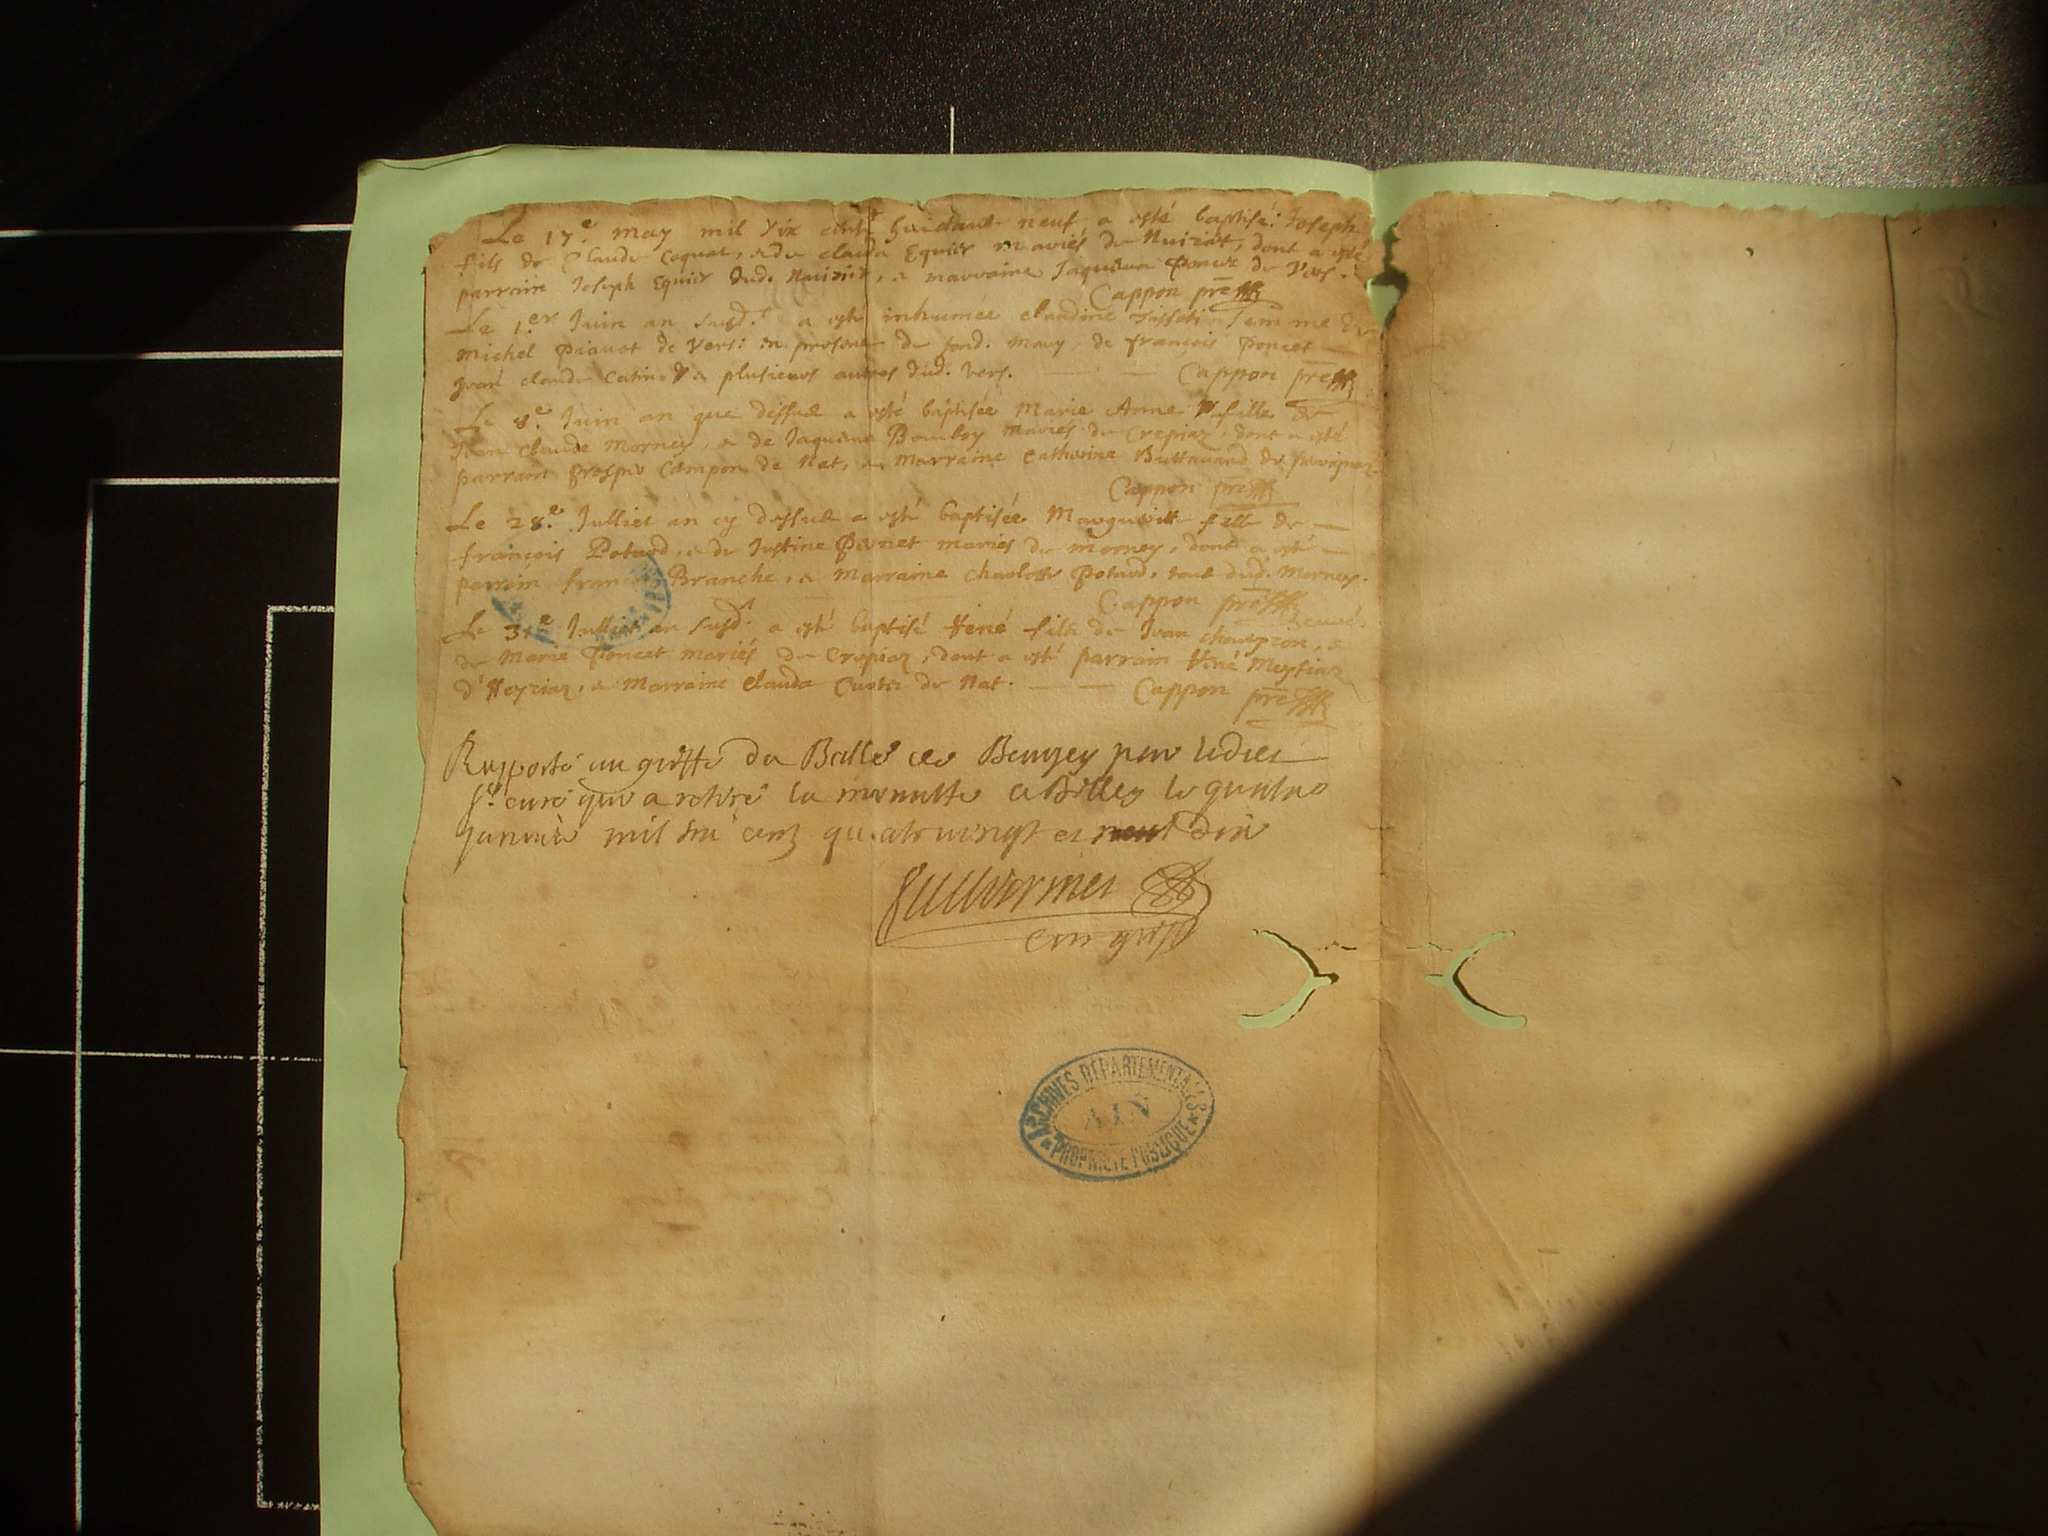 Le 17.e may mil six cents huictante neuf a esté baptisé Joseph
fils de Claude Coquat, et de Clauda Equier mariés de Nuiriat, dont a esté
parrain Joseph Equier dud. Nuiriat, a marraine Jaquema Poncet de Vers.
Cappon pre
Le 1.er Juin an susd.t a esté inhumée Claudine femme de
Michel de Vers: en presence de fond. Mauy, de françois Poncet
Jean Claude Catin & a plusieurs autres dud. Vers.
Cappon pre
Le 8.e Juin an que dessus a esté baptisée Marie Anne fille de
Jean Claude Morney, a de Jaquema Bouboy mariés de Crepiaz, dont a esté
parrain Prosper Campon de Nat, a Marraine Catherine de
Cappon pre
Le 28.e Julliet an cy dessus a esté baptisée Marguerite fille de
françois Potard, a de Justine Pernet mariés de Morney, dont a esté
parrain françois Branche, a Marraine Charlotte Potard, tous dud. Morney.
Cappon pre
Le 31.e Julliet an susd.t a esté baptisé René fils de Jean Chanpron, a
de Marie Poncet mariés de Crepiaz, dont a esté parrain René Meysiaz
d'Heyriaz, a Marraine Clauda de Nat.
Cappon pre
Rapporté au greffe du Balle de Beugey par ledict
Sr curé qui a retiré la minutte a Belley le quatre
Janvier mil six cent quatrevingt et dix
Guillermet
ARCHIVES DEPARTEMENTALES
AIN
PROPRIÉTÉ PUBLIQUE